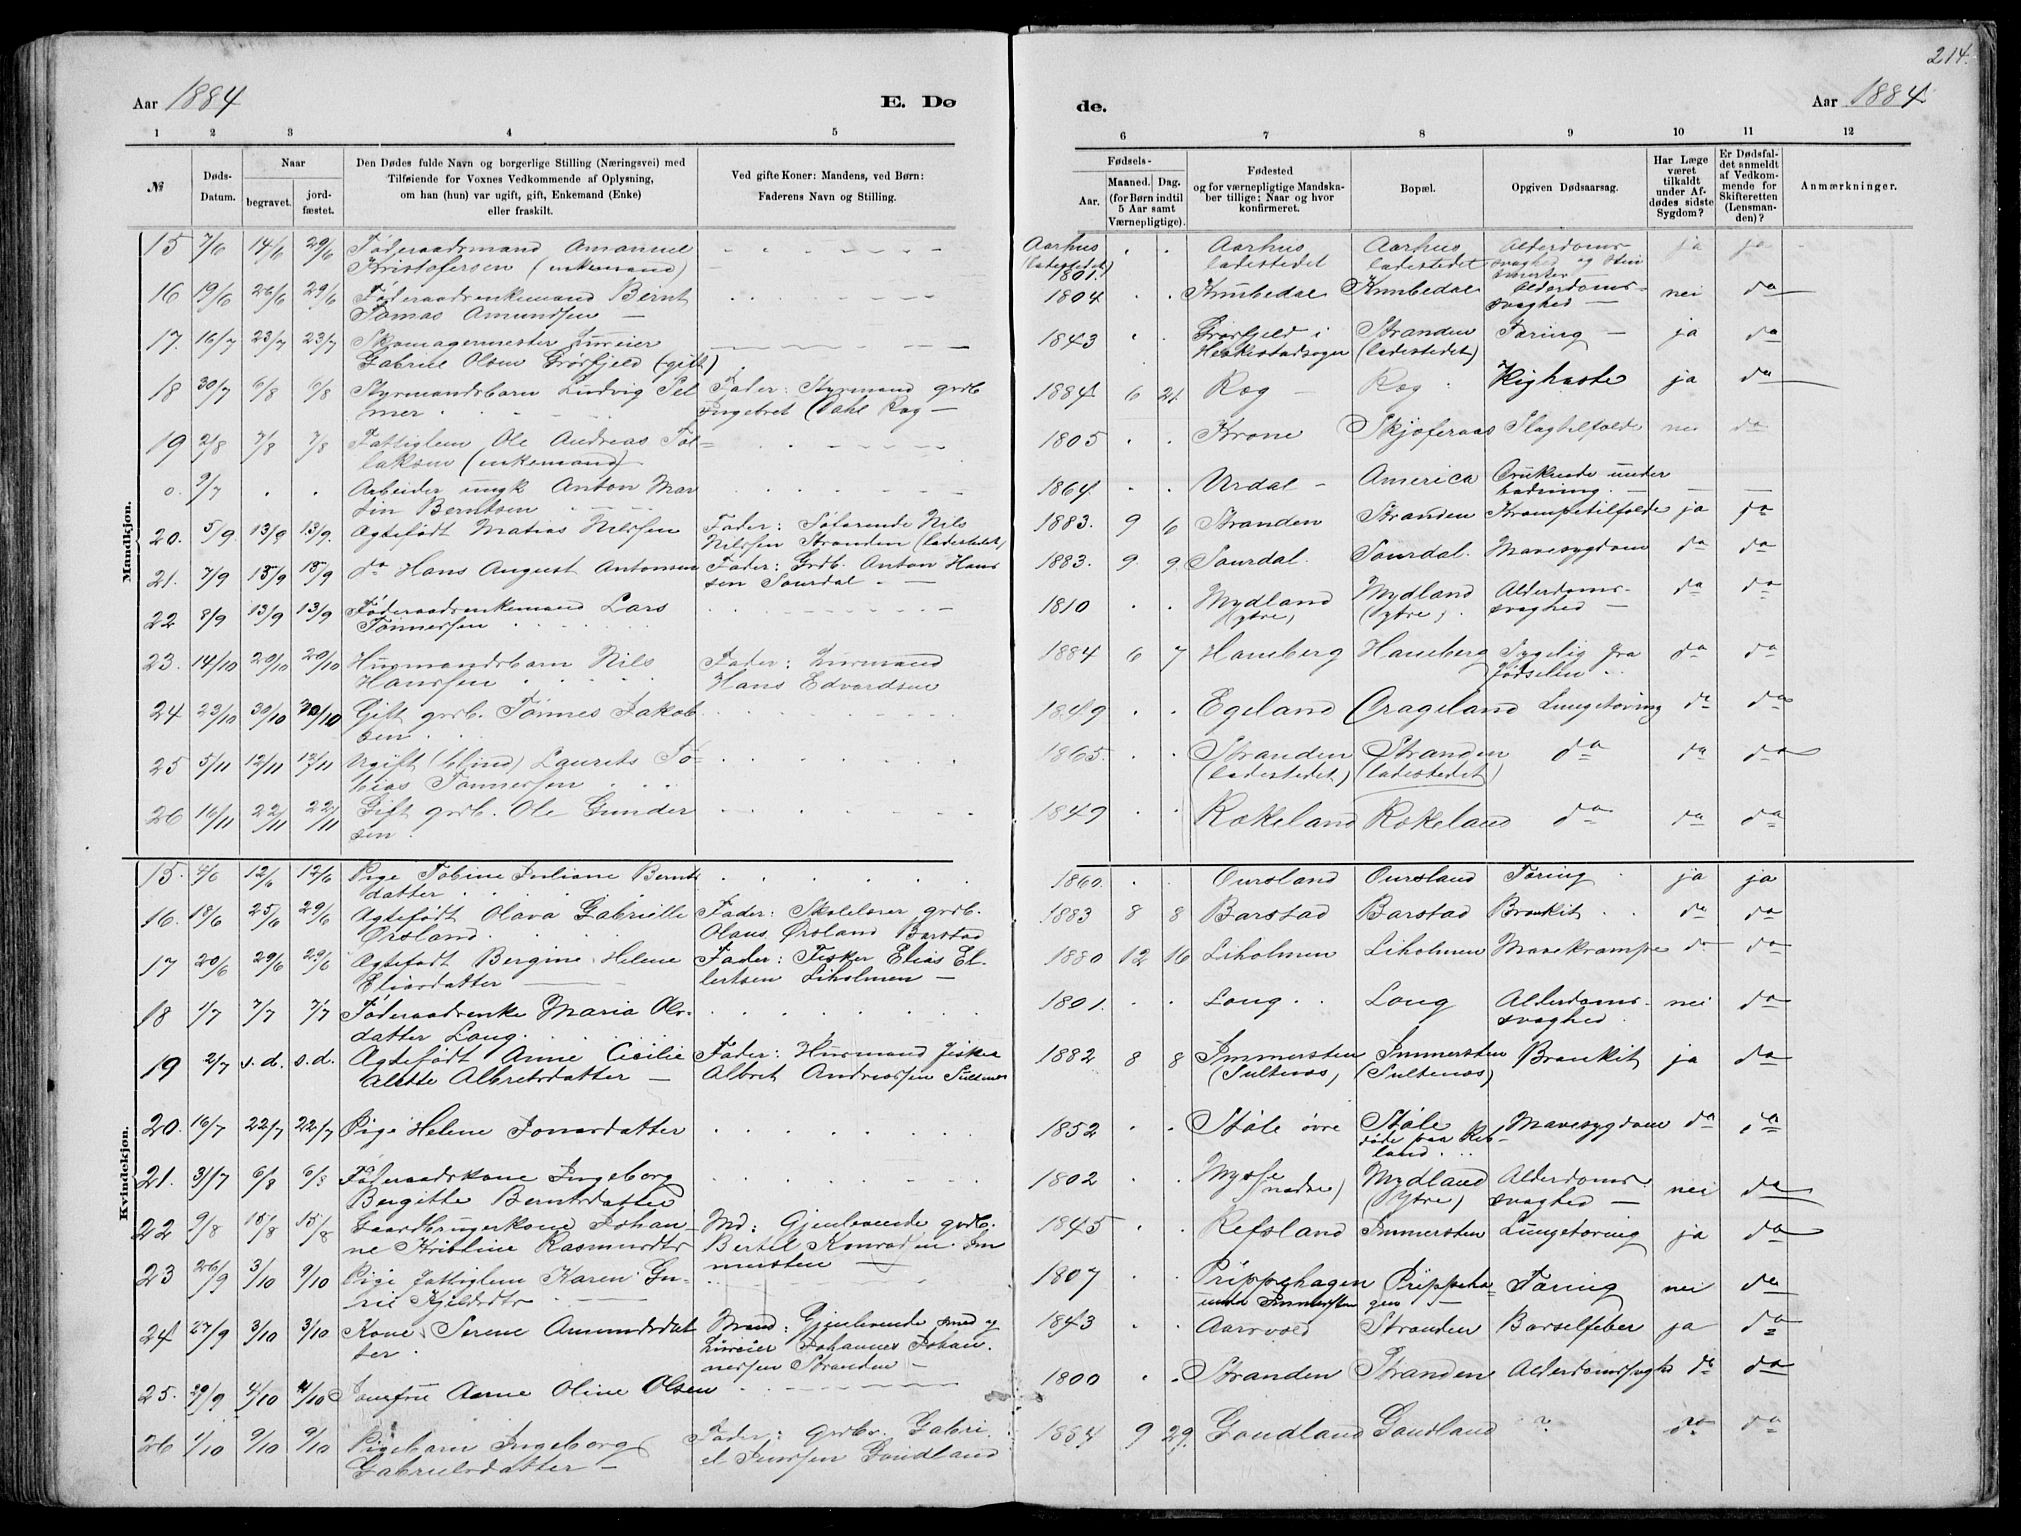 214.
Aar 1884
E. Dø
de.
Aar 1884
1 2 3 4 5 6 7 8 9 10 11 12
№
Døds-
Datum.
Naar
begravet.
jord-
fæstet.
Den Dødes fulde Navn og borgerlige Stilling (Næringsvei) med
Tilføiende for Voxnes Vedkommende af Oplysning,
om han (hun) var ugift, gift, Enkemand (Enke)
eller fraskilt.
Ved gifte Koner: Mandens, ved Børn:
Faderens Navn og Stilling.
Fødsels-
Aar.
Maaned. Dag.
(for Børn indtil
5 Aar samt
Værnepligtige).
Fødested
og for værnepligtige Mandska-
ber tillige: Naar og hvor
konfirmeret.
Bopæl.
Opgiven Dødsaarsag.
Har Læge
været
tilkaldt
under Af-
dødes sidste
Sygdom?
Er Dødsfal-
det anmeldt
af Vedkom-
mende for
Skifteretten
(Lensman-
den)?
Anmærkninger.
Mandkjøn.
15 7/6 14/6 29/6 Føderaadsmand Amanuel
Kristofersen (enkemand)
Aarhus
(ladestedet)
1801. Aarhus
ladestedet Aarhus
ladestedet Alderdoms-
svaghed og sten
smerter ja ja
16 19/6 26/6 29/6 Føderaadsenkemand Bernt
Tomas Amundsen
1804 Knubedal Knubedal Alderdoms-
svaghed nei do
17. 16/7 23/7 23/7 Skomagermester
Gabriel Olsen Grøsfjeld (gift)
1843 Grøsfjeld i
Heskestadsogn Stranden
(ladestedet) Tæring ja do
18 30/7 6/8 6/8 Styrmandsbarn Ludvig Sel
mer
Fader: Styrmand grdb
Ingebret Dahl Rog
1884 6 21. Rog Rog Kighoste ja do
19 2/8 7/8 7/8 Fattiglem Ole Andreas Tol-
laksen (enkemand)
1805 Krone Skjøferaas Slagtilfælde nei do
o. 9/7 Arbeider ungk Anton Mar
tin Berntsen
1864 Urdal America Druknede under
badning.
20. 5/9. 13/9 13/9. Ægtefødt Matias Nilssen
Fader: Søfarende Nils
Nilssen Stranden (ladestedet)
1883. 9 6 Stranden Stranden Krampetilfælde ja do
21. 7/9 15/9 15/9 do Hans August Antonsen
Fader: Grdb. Anton Hans
sen Sourdal
1883. 9 9. Sourdal. Sourdal. Mavesygdom do do
22 8/9 13/9 13/9 Føderaadsenkemand Lars
Tønnessen
1810 Mydland
(ytre) Mydland
(ytre) Alderdoms-
svaghed do do
23. 14/10 20/10 20/10 Husmandsbarn Nils
Hanssen
Fader: Husmand
Hans Edvardsen
1884 6 7 Haneberg Haneberg Sygelig fra
Fødselen do do
24 23/10 30/10 30/10 Gift grdb. Tønnes Jakob
sen
1849 Egeland Drageland Lungetæring do do
25 5/11 12/11 12/11 Ugift (blind) Laurits To-
bias Tønnessen
1865. Stranden
(ladestedet) Stranden
(ladestedet) do do do
26 16/11 22/11 22/11 Gift grdb. Ole Gunder
sen
1849 Rækeland Rækeland do do do
Kvindekjøn.
15. 4/6 12/6 12/6 Pige Tobine Juliane Bernts
datter
1860. Oursland Oursland Tæring ja ja
16. 18/6 25/6 29/6 Ægtefødt Olava Gabrielle
Ørsland.
Fader: Skolelærer grdb.
Olaus Ørsland Barstad
1883 8 8 Barstad Barstad Bronkit do do
17 20/6 29/6 29/6 Ægtefødt Bergine Helene
Eliasdatter
Fader: Fisker Elias El-
lertsen Liholmen
1880 12 16 Liholmen Liholmen Mavekrampe do do
18 1/7 7/7 7/7 Føderaadsenke Maria Ols-
datter Long
1801. Long Long Alderdoms-
svaghed. nei do
19 2/7 s.d. s.d. Ægtefødt Anne Cecilie
Alette Albretsdatter
Fader: Husmand fisker
Albret Andreassen Sultenæs
1882 8 8 Immersten
(Sultenæs) Immersten
(Sultenæs) Bronkit ja do
20. 16/7 22/7 22/7 Pige Helene Jonasdatter
1852 Støle øvre Støle
døde paa Rek-
land. Mavesygdom do do
21. 31/7 6/8 6/8 Føderaadskone Ingeborg
Bergitte Berntsdatter
1802 Mysse
(nedre) Mydland
(Ytre) Alderdoms.
svaghed nei do
22 9/8 15/8 15/8 Gaardbrugerkone Johan-
ne Kristine Rasmusdtr
Md: Gjenlevende grdb.
Bertel Konraden. Im
mersten
1845 Refsland Immersten Lungetæring ja do
23 26/9 3/10 9/10 Pige fattiglem Karen Gu-
rie Kjeldsdtr
1807 Prippehagen
under Immersten Prippeha-
gen Tæring nei do
24 27/9 3/10 3/10 Kone Serene Amundsdat
ter.
Mand: Gjenlevende smed og
Huseier Johannes Johan-
nessen Stranden
1843 Aarsvold Stranden Barselfeber ja do
25. 29/9 4/10 4/10 Jomfru Anne Oline Olsen
1800 Stranden Stranden Alderdomssvaghd do do
26 1/10 9/10 9/10 Pigebarn Ingeborg
Gabrielsdatter
Fader: grdbr. Gabri
el Jenssen Goudland
1884 9 29. Goudland Goudland ? do do